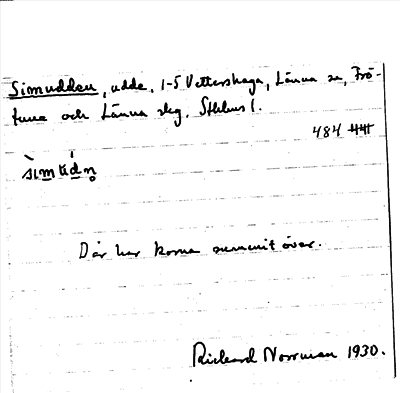 Simudden, udde, 1-5 Vettershaga, Länna sn, Frö-
tuna och Länna slg. Sthlms l.
484
sìmúdṇ
Där har korna summit över.
Rickard Norrman 1930.